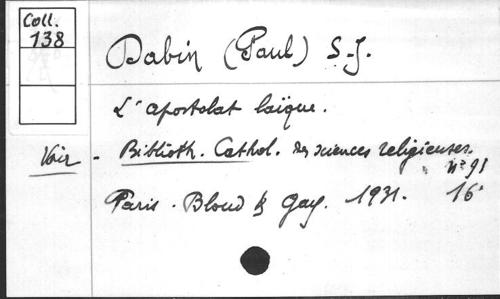 Coll.
138
Dabin (Paul) S.J.
L'apostolat laïque.
Voir - Biblioth. Cathol. des sciences religieuses.
n° 91
Paris. Bloud & Gay. 1931. 16°